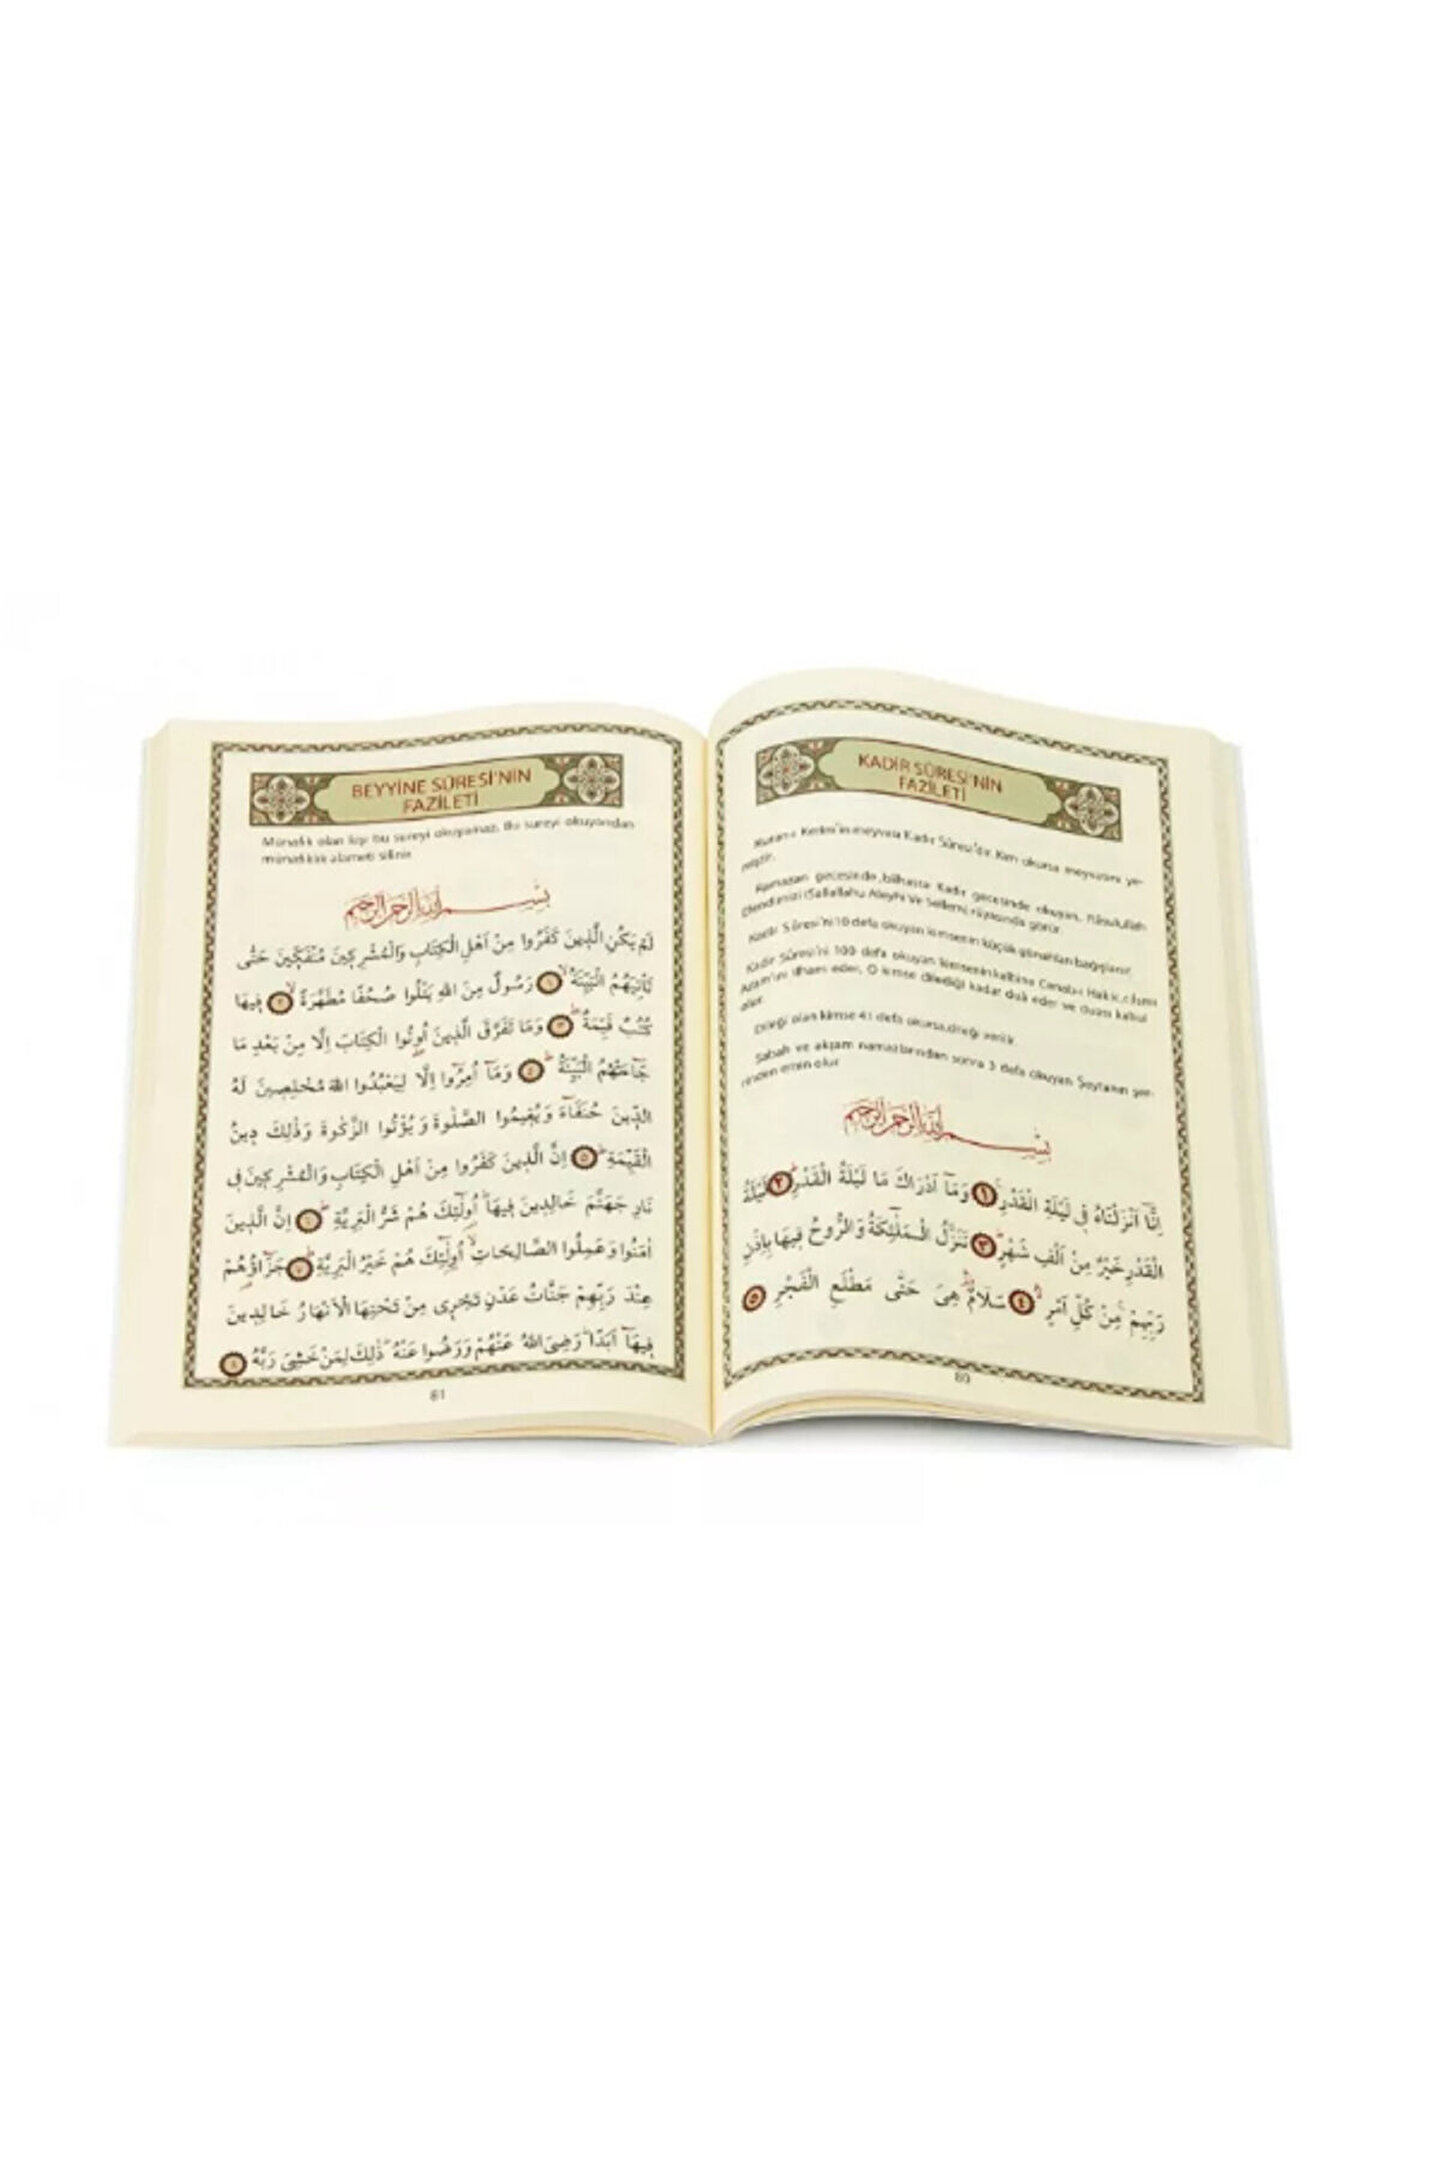 KADİR SÛRESİ'NİN
FAZİLETİ
Kuran-ı Kerim'in meyvesi Kadir Sûresi'dir. Kim okursa meyvasını ye-
miştir.
Ramazan gecesinde, bilhassa Kadir gecesinde okuyan, Râsulullah
Efendimizi (Sallallahu Aleyhi Ve Sellem) rüyasında görür.
Kadir Sûresi'ni 10 defa okuyan kimsenin küçük günahları bağışlanır.
Kadir Sûresi'ni 100 defa okuyan kimsenin kalbine Cenab-ı Hak ism-i
Azam'ını ilham eder, O kimse dilediği kadar duâ eder ve duası kabul
olur.
Dileği olan kimse 41 defa okursa, dileği verilir.
Sabah ve akşam namazlarından sonra 3 defa okuyan Şeytanın şer-
rinden emin olur.
بِسْمِ اللهِ الرَّحْمٰنِ الرَّحِيمِ
اِنَّٓا اَنْزَلْنَاهُ فِى لَيْلَةِ الْقَدْرِ ۚ ﴿١﴾ وَمَٓا اَدْرَاكَ مَا لَيْلَةُ الْقَدْرِ ۜ ﴿٢﴾ لَيْلَةُ
الْقَدْرِ خَيْرٌ مِنْ اَلْفِ شَهْرٍ ۜ ﴿٣﴾ تَنَزَّلُ الْمَلٰٓئِكَةُ وَالرُّوحُ فِيهَا بِاِذْنِ
رَبِّهِمْ ۚ مِنْ كُلِّ اَمْرٍ ۙ ﴿٤﴾ سَلَامٌ ۠ هِىَ حَتّٰى مَطْلَعِ الْفَجْرِ ﴿٥﴾
80
BEYYİNE SÛRESİ'NİN
FAZİLETİ
Münafık olan kişi bu sureyi okuyamaz. Bu sureyi okuyandan
münafıklık alameti silinir.
بِسْمِ اللهِ الرَّحْمٰنِ الرَّحِيمِ
لَمْ يَكُنِ الَّذِينَ كَفَرُوا مِنْ اَهْلِ الْكِتَابِ وَالْمُشْرِكِينَ مُنْفَكِّينَ حَتّٰى
تَاْتِيَهُمُ الْبَيِّنَةُ ۙ ﴿١﴾ رَسُولٌ مِنَ اللهِ يَتْلُوا صُحُفًا مُطَهَّرَةً ۙ ﴿٢﴾ فِيهَا
كُتُبٌ قَيِّمَةٌ ۜ ﴿٣﴾ وَمَا تَفَرَّقَ الَّذِينَ اُو۫تُوا الْكِتَابَ اِلَّا مِنْ بَعْدِ مَا
جَٓاءَتْهُمُ الْبَيِّنَةُ ۜ ﴿٤﴾ وَمَٓا اُمِرُٓوا اِلَّا لِيَعْبُدُوا اللهَ مُخْلِصِينَ لَهُ
الدِّينَ حُنَفَٓاءَ وَيُقِيمُوا الصَّلٰوةَ وَيُؤْتُوا الزَّكٰوةَ وَذٰلِكَ دِينُ
الْقَيِّمَةِ ۜ ﴿٥﴾ اِنَّ الَّذِينَ كَفَرُوا مِنْ اَهْلِ الْكِتَابِ وَالْمُشْرِكِينَ فِى
نَارِ جَهَنَّمَ خَالِدِينَ فِيهَا ۜ اُو۬لٰٓئِكَ هُمْ شَرُّ الْبَرِيَّةِ ۜ ﴿٦﴾ اِنَّ الَّذِينَ
اٰمَنُوا وَعَمِلُوا الصَّالِحَاتِ ۙ اُو۬لٰٓئِكَ هُمْ خَيْرُ الْبَرِيَّةِ ۜ ﴿٧﴾ جَزَٓاؤُ۬هُمْ
عِنْدَ رَبِّهِمْ جَنَّاتُ عَدْنٍ تَجْرِى مِنْ تَحْتِهَا الْاَنْهَارُ خَالِدِينَ
فِيهَٓا اَبَدًا ۜ رَضِىَ اللهُ عَنْهُمْ وَرَضُوا عَنْهُ ۜ ذٰلِكَ لِمَنْ خَشِىَ رَبَّهُ ﴿٨﴾
81